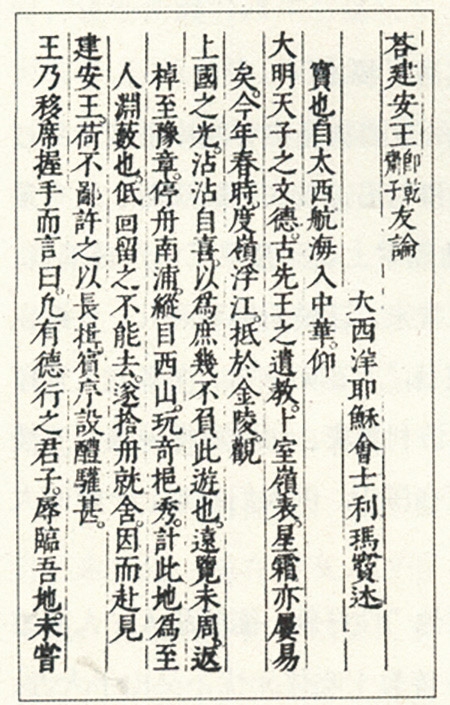 荅建安王即乾齋子友論
大西洋耶穌會士利瑪竇述
竇也。自太西航海入中華。仰
大明天子之文德。古先王之遺教。卜室嶺表。星霜亦屢易
矣。今年春時。度嶺浮江。抵於金陵。觀
上國之光。沾沾自喜。以爲庶幾不負此遊也。遠覽未周。返
棹至豫章。停舟南浦。縱目西山。玩奇挹秀。計此地爲至
人淵藪也。低回留之不能去。遂捨舟就舍。因而赴見
建安王。荷不鄙許之以長揖。賓序設醴驩甚。
王乃移席握手而言曰。凢有德行之君子。辱臨吾地。未嘗